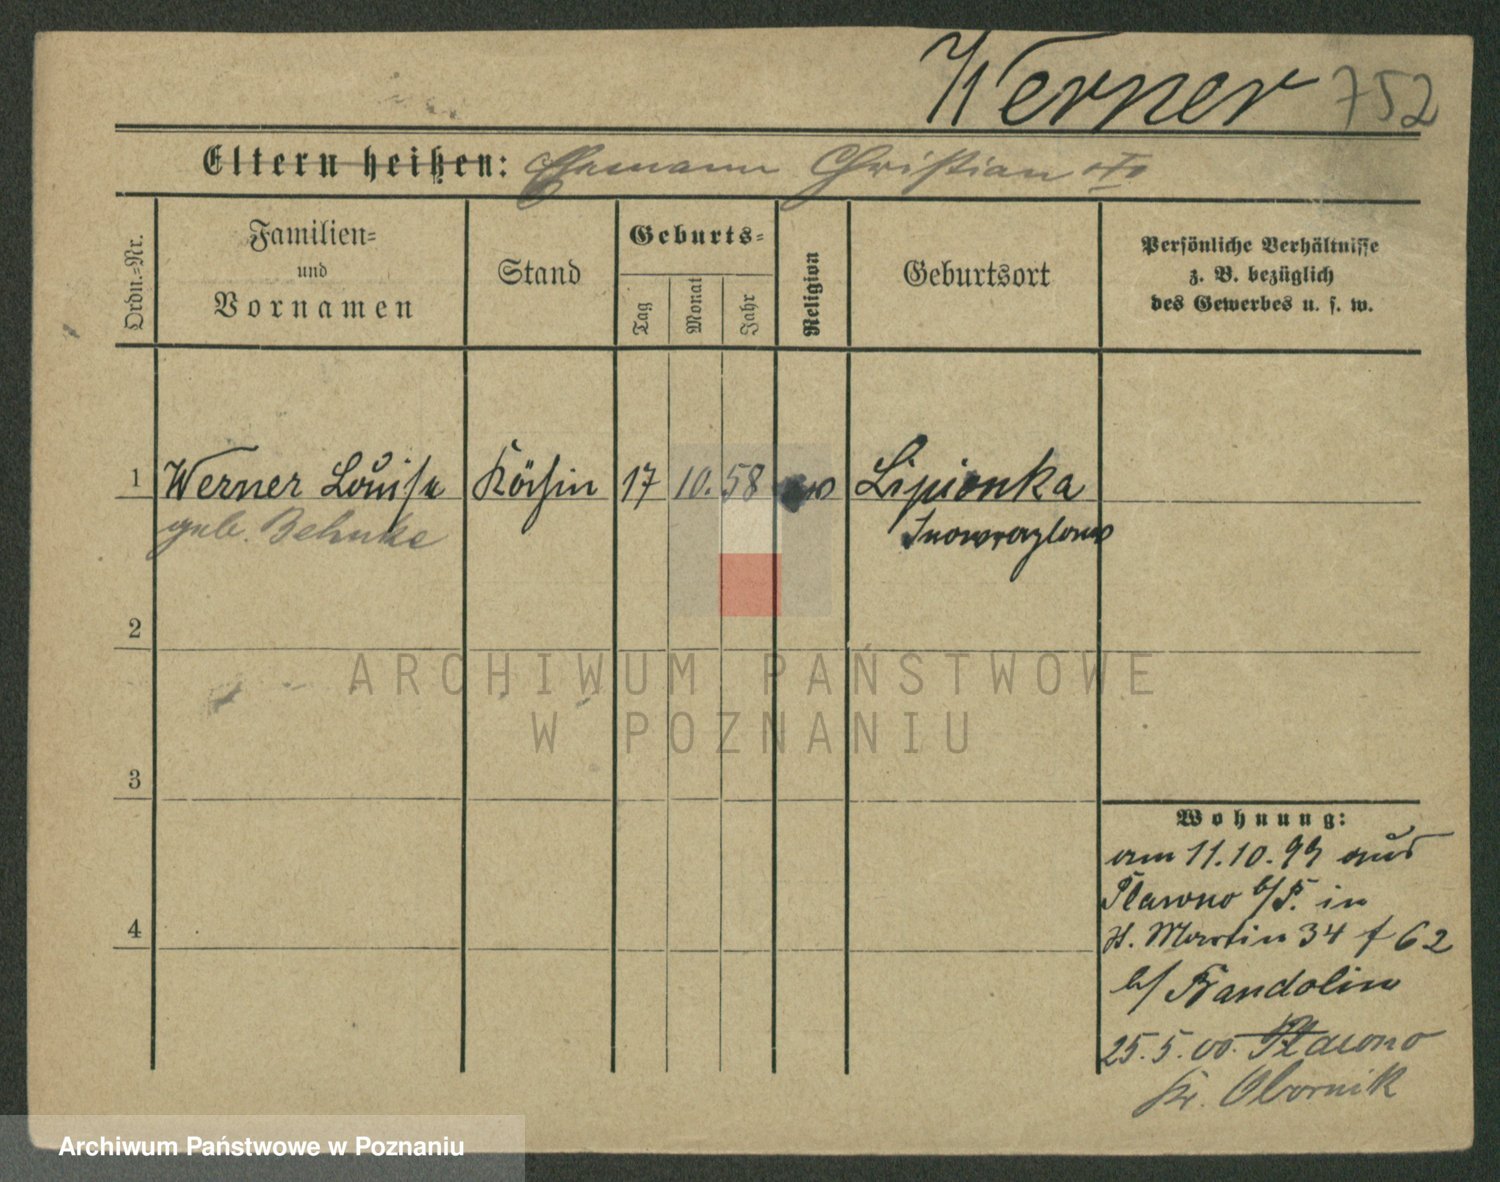 Werner 752
Eltern heißen: Ehemann Christian
Ordn.-Nr.
Familien-
und
Vornamen
Stand
Geburts-
Tag
Monat
Jahr
Religion
Geburtsort
Persönliche Verhältnisse
z. B. bezüglich
des Gewerbes u. s. w.
1 Werner Louise Köchin 17 10. 58 ew Lipionka
geb. Behnke Inowrazlaw
2
ARCHIWUM PAŃSTWOWE
W POZNANIU
3
Wohnung:
am 11.10.99 aus
Plawno b/P. in
St. Martin 34 f 62
b/ Bandolin
25.5.00. Plawno
Kr. Obornik
4
Archiwum Państwowe w Poznaniu